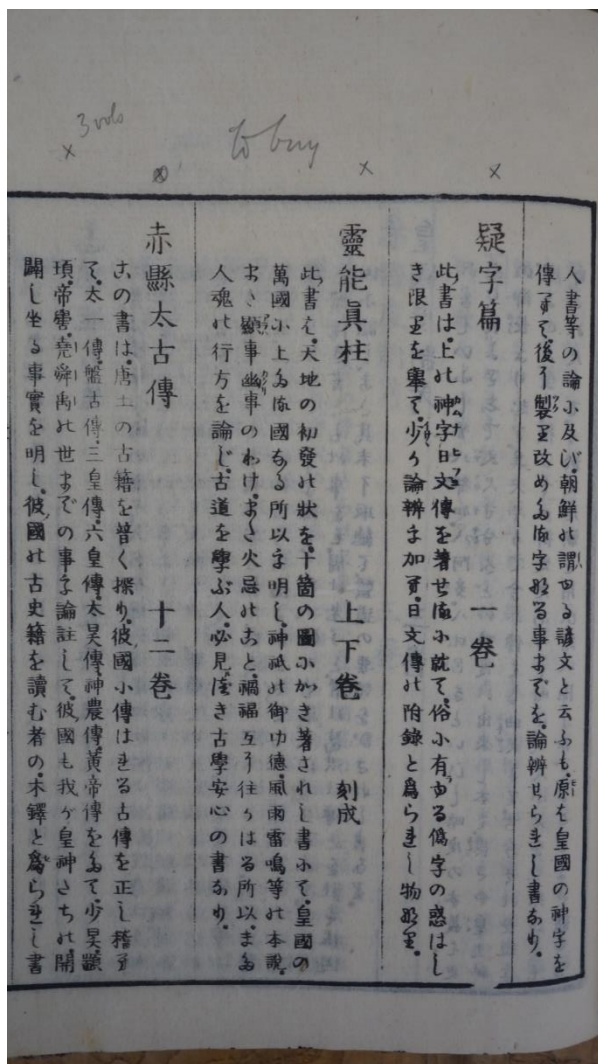 3 vols
to buy
人書等の論小及び、朝鮮の謂ゆる諺文と云ふも、原は皇國の神字を
傳へて、後に製り改めたる字なる事までを、論辨せられし書なり。
疑字篇 一卷
此書は、上の神字日文傳を著せる小就て、俗小有ゆる僞字の惑はし
き限りを擧て、少か論辨を加へ、日文傳の附録と爲られし物なり。
靈能眞柱 上下卷 刻成
此書は、天地の初發の狀を、十箇の圖小かき著されし書小て、皇國の
萬國小上たる國なる所以を明し、神祇の御功德、風雨雷鳴等の本說、
まさ顯事幽事のわけ、まさ火忌のこと、禍福互に往かはる所以、また
人魂の行方を論じ、古道を學ぶ人、必見べき古學安心の書なり。
赤縣太古傳 十二卷
この書は、唐土の古籍を普く探り、彼國小傳はれる古傳を正し稽へ
て、太一傳、盤古傳、三皇傳、六皇傳、太昊傳、神農傳、黃帝傳をたて、少昊、顓
頊、帝嚳、堯舜禹の世までの事を論註して、彼國も我が皇神たちの、開
闢し坐る事實を明し、彼國の古史籍を讀む者の、木鐸と爲られし書